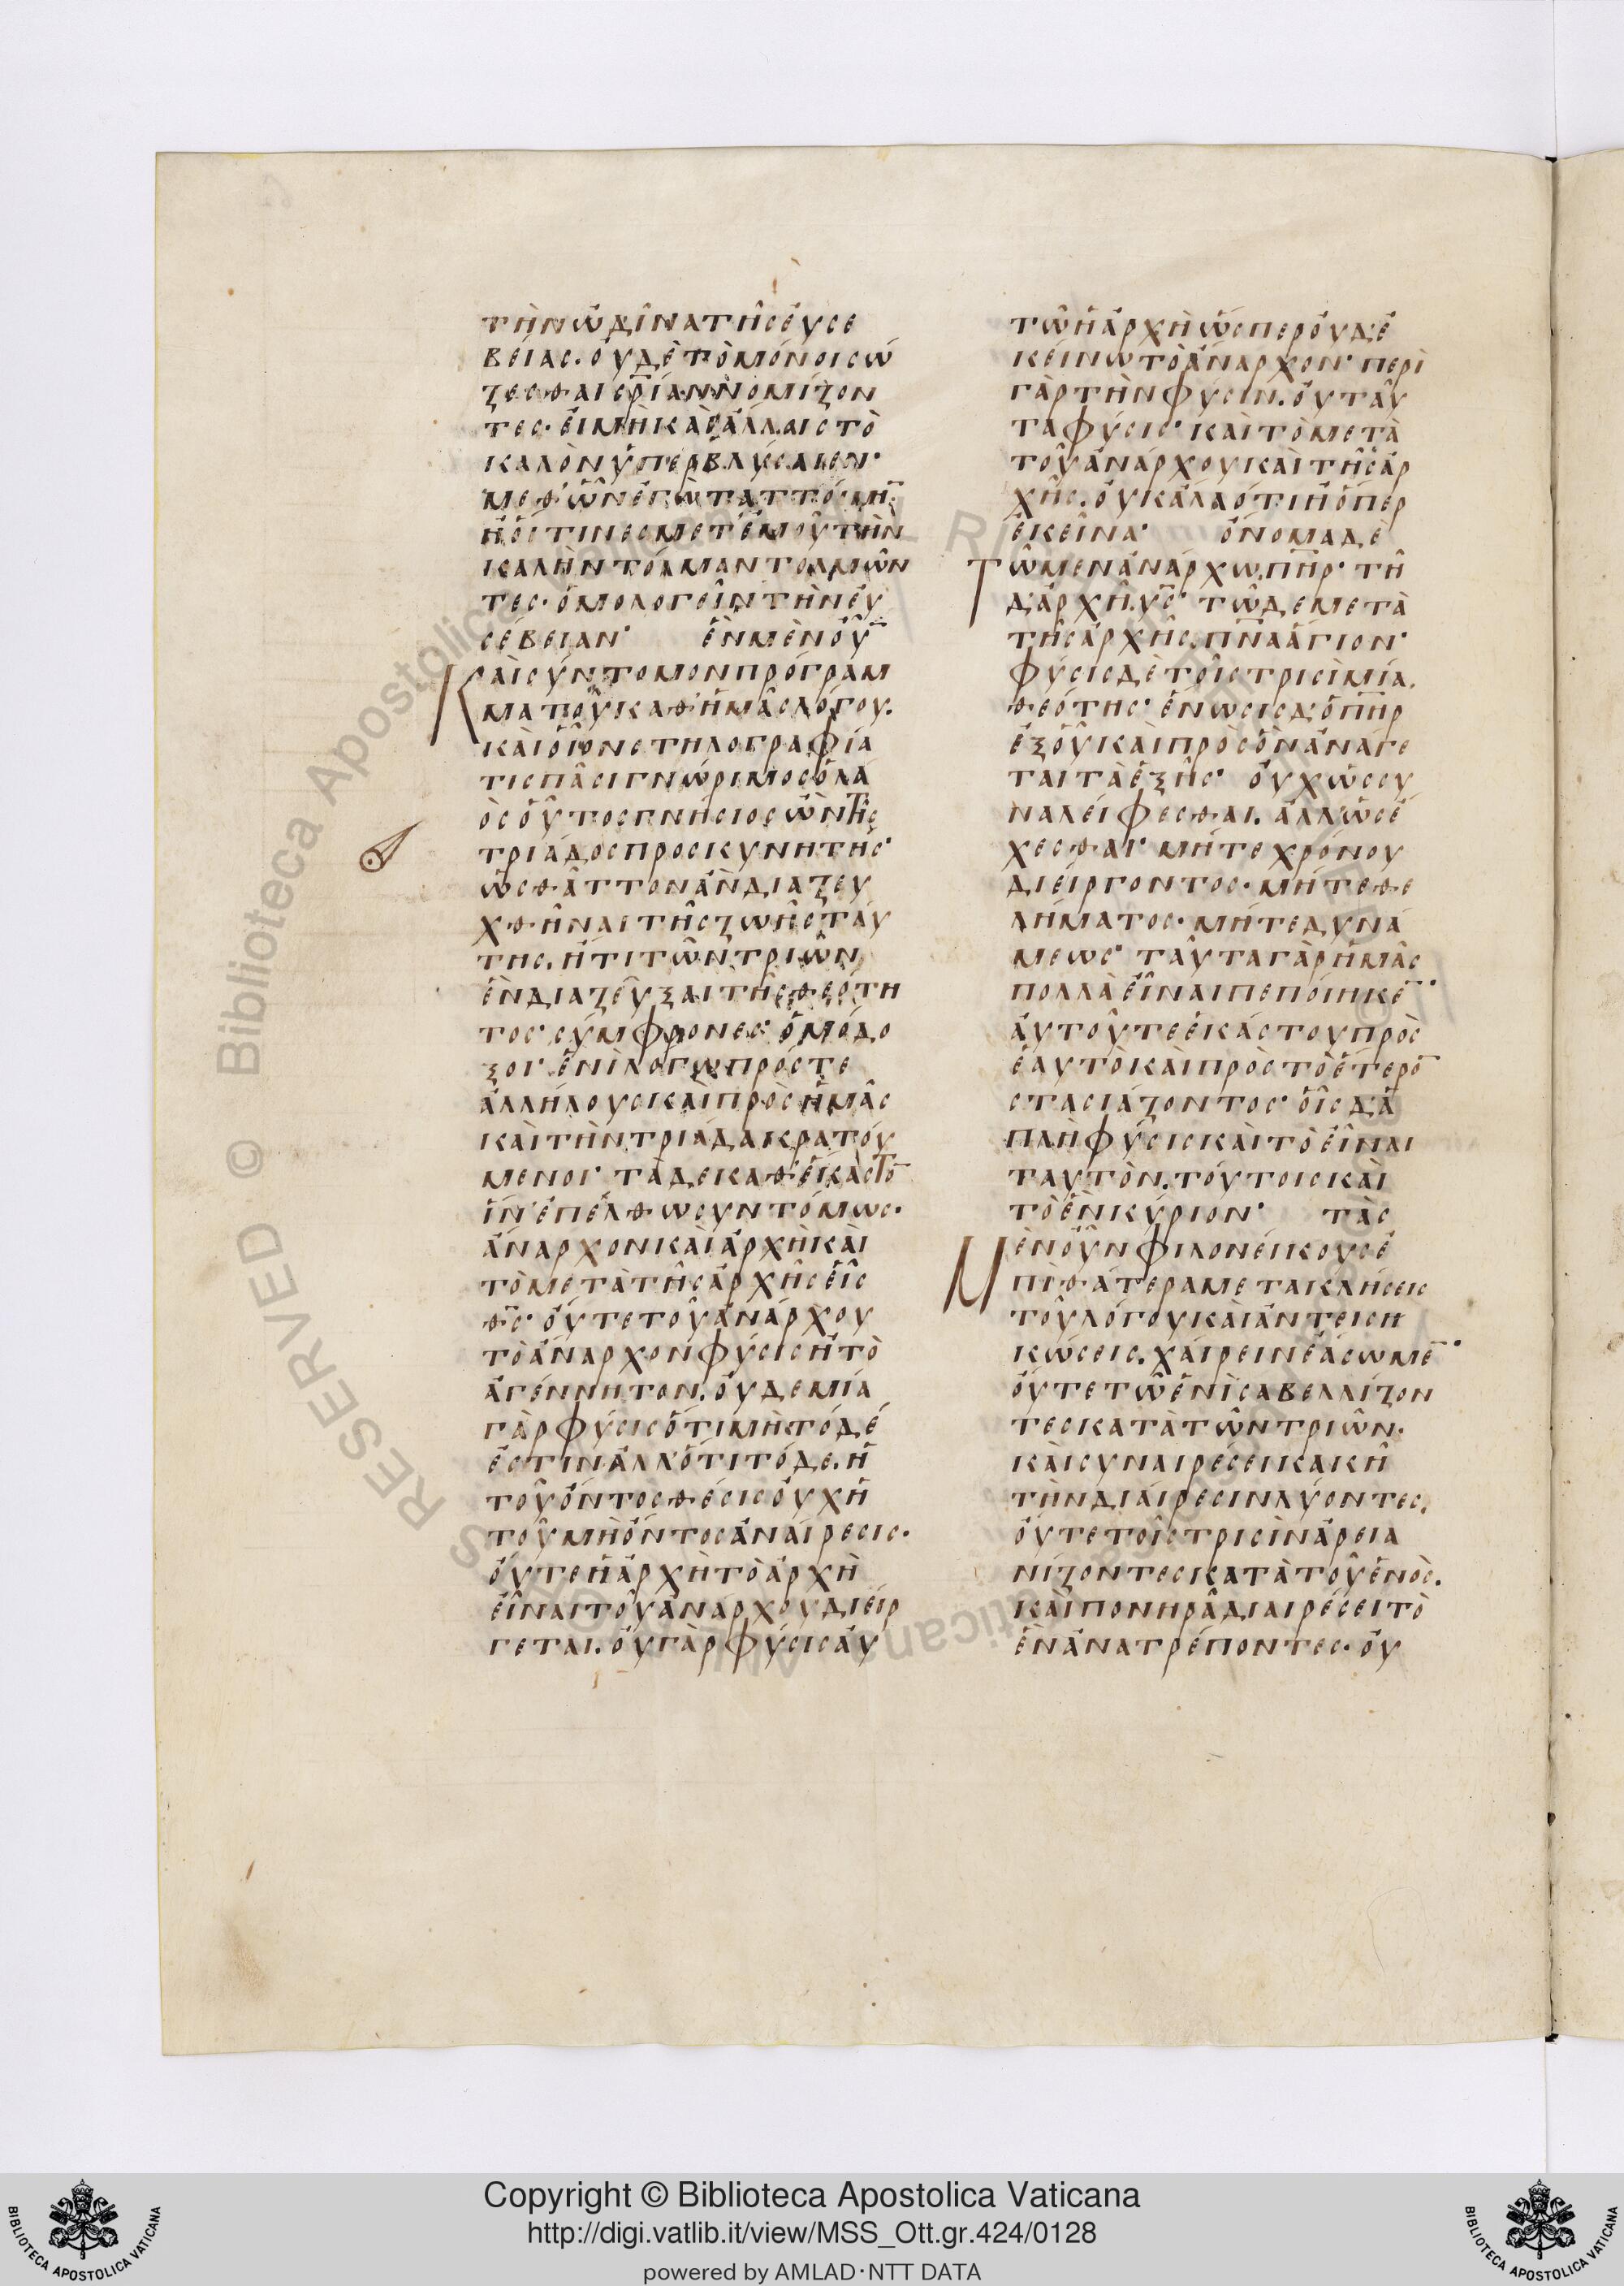 τὴνὠδῖνατῆσἐυσε
βείας. ὀυδὲτὸμόνοισώ
ζεσθαισρ̅ί̅ανν̀ομίζον
τες· ἐιμὴκαὶἄλλοιστὸ
καλὸνὑπερβλύσαιεν·
μεθ'ὧνἐγὼταττόιμη̅
ἢὅιτινεσμετ'ἐμοῦτὴν
καλὴντόλμαντολμῶν
τες· ὁμολογεῖντὴνἐυ
σέβειαν· ἓνμὲνὀῦ̅
Καὶσύντομονπρόγραμ
ματοῦκαθ'ἡμᾶσλόγου.
καὶὁῖονστηλογραφία
τισπᾶσιγνώριμοσὁλα
ὸσὁῦτοσγνήσιοσὢντῆς
τριάδοσπροσκυνητής·
ὡσθᾶττονἂνδιαζευ
χθῆναιτῆσζωῆσταύ
της. ἤτιτῶντριῶν
ἓνδιαζεῦξαιτῆσθεότη
τος· σύμφρονες· ὁμόδο
ξοι· ἑνὶλόγωπρόστε
ἀλλήλουσκαὶπρὸσἡμᾶς
καὶτὴντριάδακρατόυ
μενοι· τὰδεκαθ'ἕκαστο̅
ἵν'ἐπέλθωσυντόμως·
ἄναρχονκαὶἀρχὴκαὶ
τὸμετὰτῆσἀρχῆσἐῖς
θ̅ς̅· ὄυτετοῦἀνάρχου
τὸἄναρχονφύσισἢτὸ
ἀγέννητον. ὀυδεμία
γὰρφύσισὅτιμὴτόδέ
ἐστινἀλλ'ὅτιτόδε. ἡ
τοῦὄντοσθέσισὀυχἡ
τοῦμὴὄντοσἀναίρεσις·
ὄυτεἡἀρχὴτὸἀρχὴ
ἐῖναιτοῦἀνάρχουδιείρ
γεται. ὀυγὰρφύσισἀυ
τῶἡἀρχὴὥσπερὀυδέ
κείνωτὸἄναρχον· περὶ
γὰρτὴνφύσιν. ὀυταῦ
ταφύσις· καὶτὸμετὰ
τοῦἀνάρχουκαὶτῆσἀρ
χῆς. ὀυκἄλλοτιἢὅπερ
ἐκεῖνα· ὄνομαδὲ
Τῶμενἀνάρχω. π̅η̅ρ̅· τῆ
δ'ἀρχῆ. υ̅ς̅· τῶδεμετὰ
τῆσἀρχῆς. π̅ν̅α̅ἅγιον·
φύσισδὲτοῖστρισὶμία.
θεότης· ἕνωσισδ'ὁπ̅η̅ρ̅
ἐξὁῦκαιπροσὃνἀνάγε
ταιτὰἑξῆς· ὀυχὡσσυ
ναλείφεσθαι. ἀλλ'ὡσἔ
χεσθαι· μήτεχρόνου
διείργοντος· μήτεθε
λήματος· μήτεδυνά
μεως· ταῦταγὰρἡμᾶς
πολλὰἐῖναιπεπόιηκε̅·
ἀυτοῦτεἑκάστουπρὸς
ἑαυτὸκαὶπρὸστὸἕτερο̅
στασιάζοντος· ὁῖσδ'ἁ
πλῆφύσισκαὶτὸἐῖναι
ταυτὸν. τόυτοισκαὶ
τὸἓνκύριον· τὰς
Μὲνὀῦνφιλονείκουσἐ
πὶθάτεραμετακλήσεις
τοῦλόγουκαὶἀντειση
κώσεις. χάιρεινἐάσωμε̅·
ὄυτετῶἑνὶσαβελλίζον
τεσκατὰτῶντριῶν·
καὶσυναιρέσεικακῆ
τὴνδιάιρεσινλύοντες,
ὄυτετοῖστρισὶνἀρεια
νίζοντεσκατὰτοῦἑνὸς.
καὶπονηρᾶδιαιρέσειτὸ
ἓνἀνατρέποντες· ὀυ
RESERVED © Biblioteca Apostolica Vaticana
Copyright © Biblioteca Apostolica Vaticana
http://digi.vatlib.it/view/MSS_Ott.gr.424/0128
powered by AMLAD·NTT DATA
BIBLIOTECA APOSTOLICA VATICANA
BIBLIOTECA APOSTOLICA VATICANA